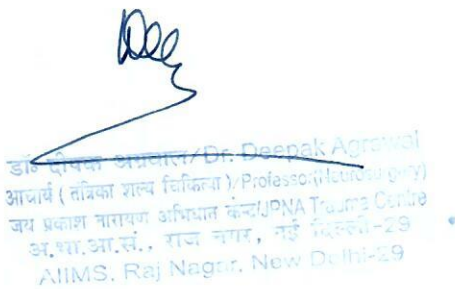 डॉ० दीपक अग्रवाल/Dr. Deepak Agrawal
आचार्य (तंत्रिका शल्य चिकित्सा)/Professor(Neurosurgery)
जय प्रकाश नारायण अभिघात केन्द्र/JPNA Trauma Centre
अ.भा.आ.सं., राज नगर, नई दिल्ली-29
AIIMS, Raj Nagar, New Delhi-29